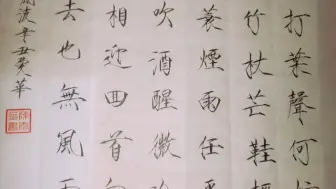 打葉聲何
竹杖芒鞋
蓑煙雨任
吹酒醒微
相迎回首
去也無風雨
波辛丑華